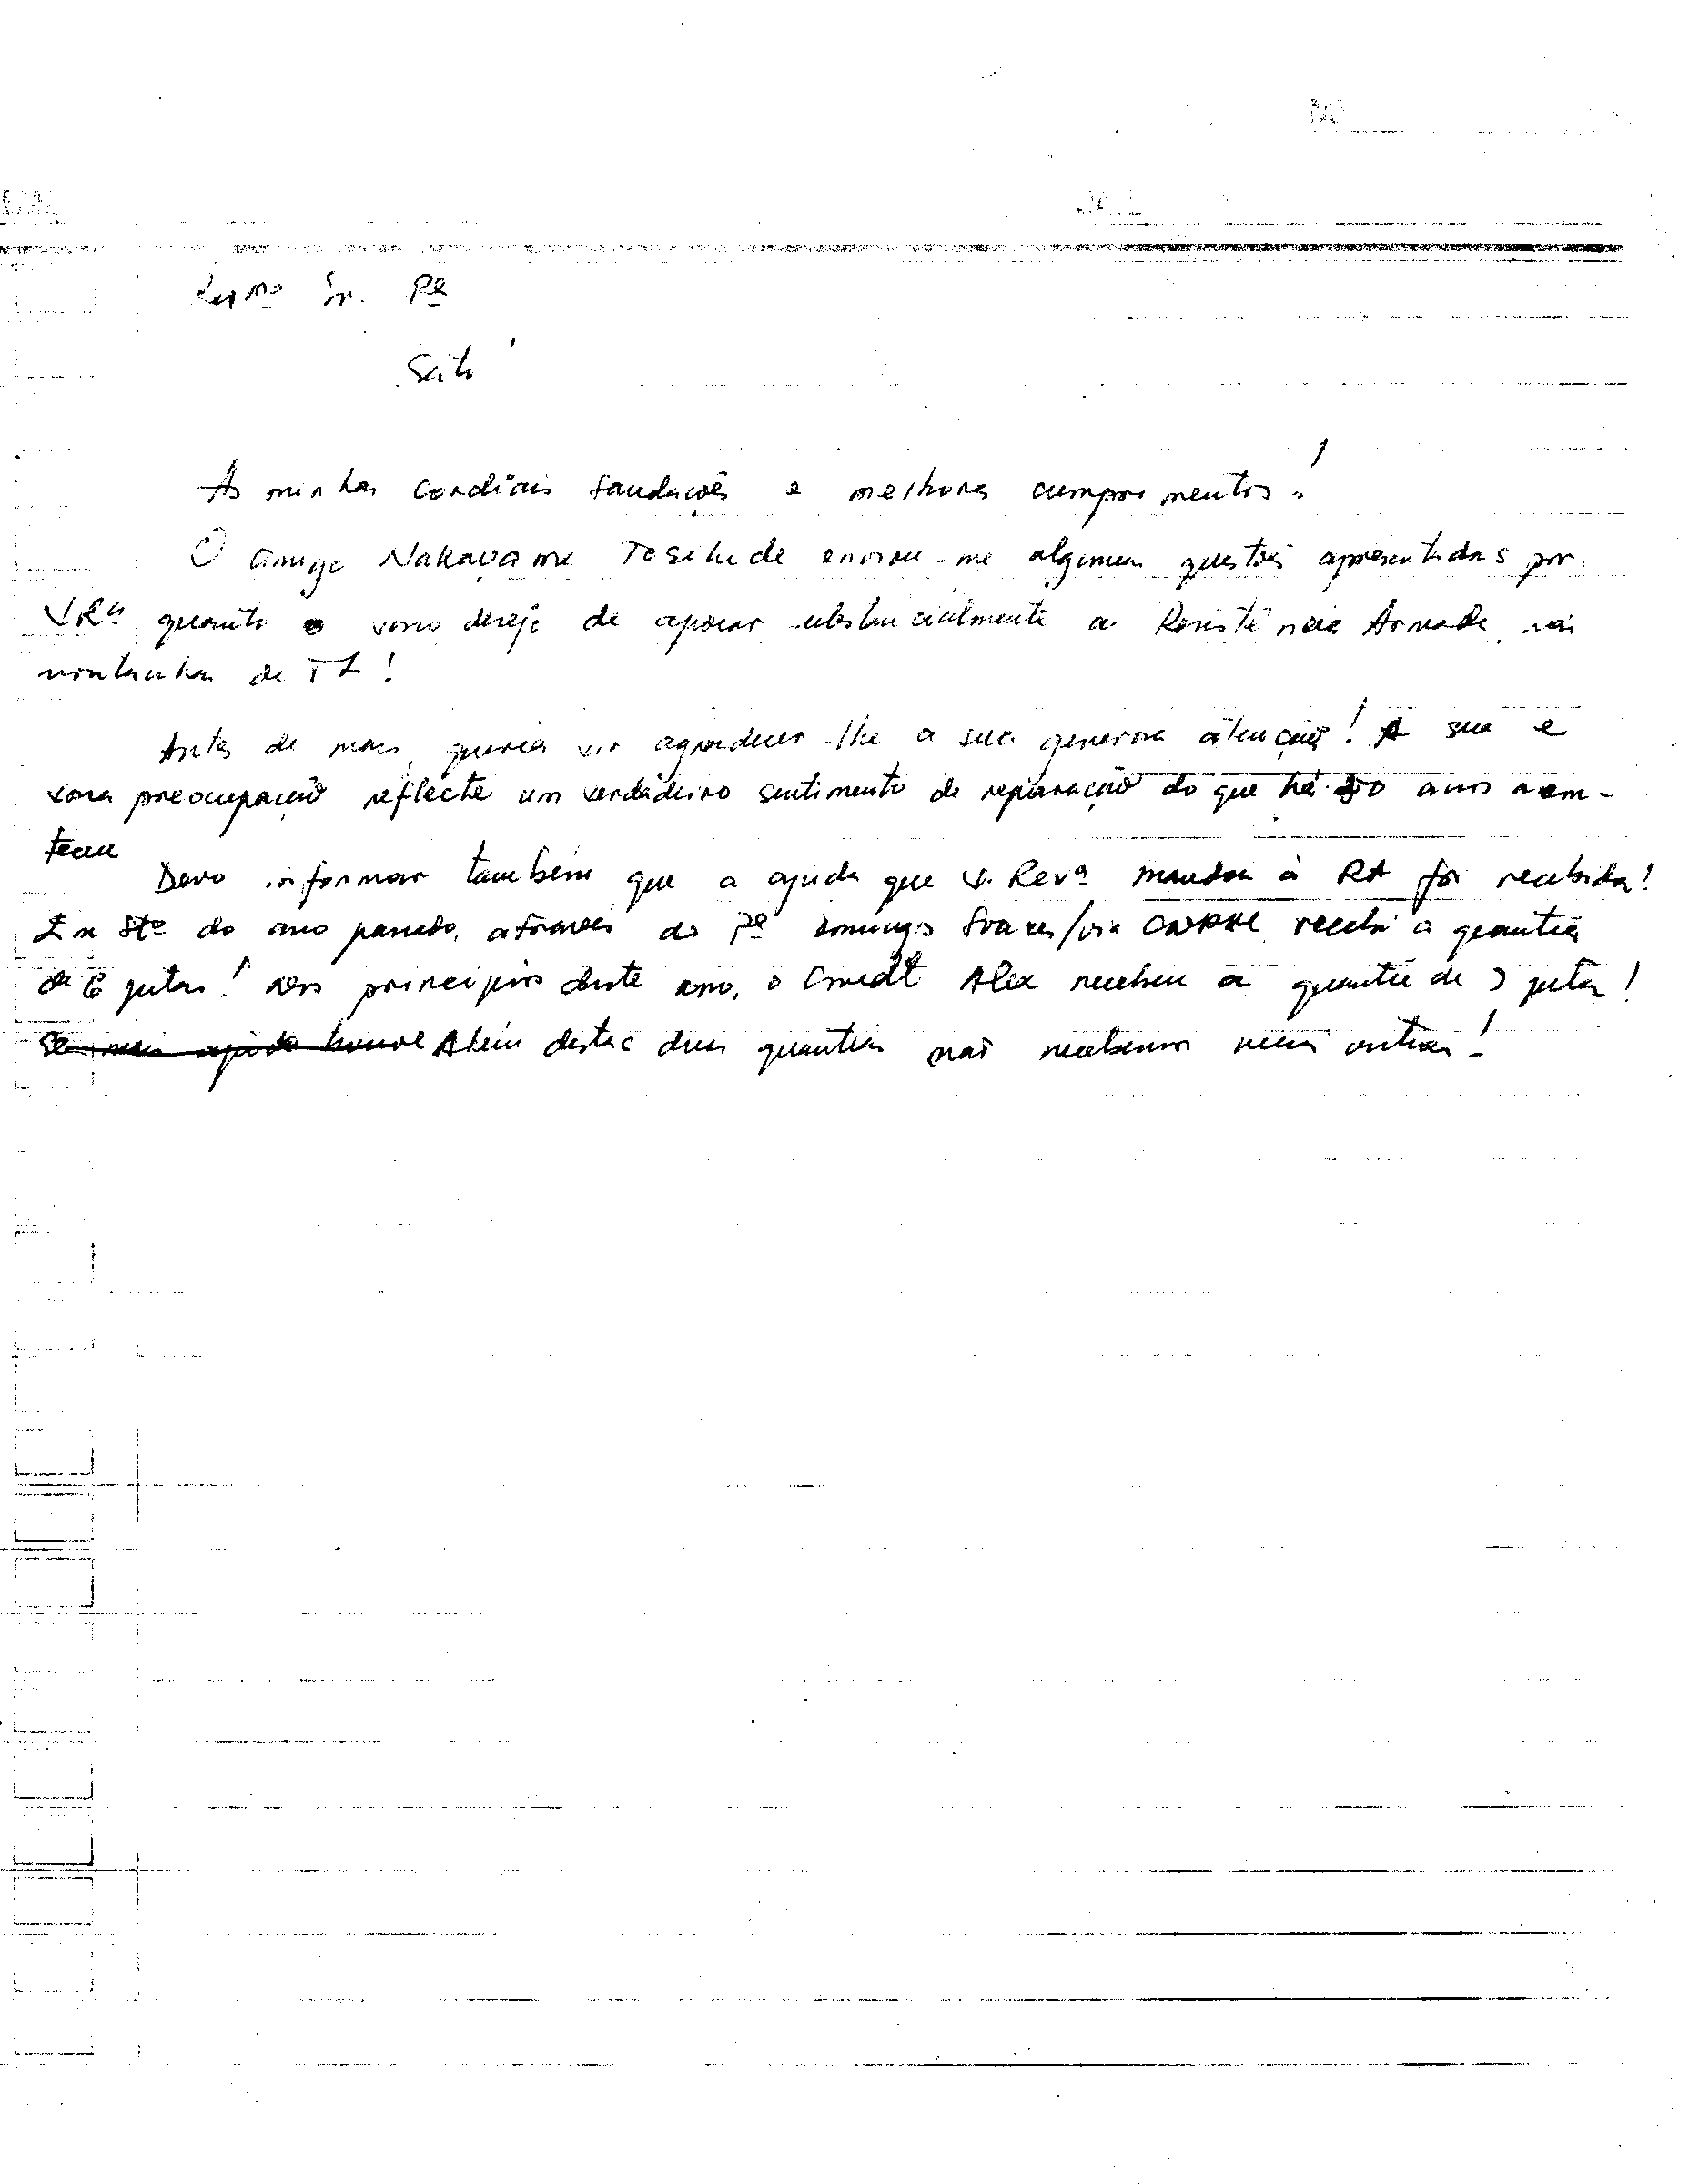 Exmo Sr. Pe
Saito
As minhas cordiais saudações e melhores cumprimentos!
O amigo Nakayama Tosihide enviou-me algumas questões apresentadas por
V Ra quanto o vosso desejo de apoiar substancialmente a Resistência Armada nas
montanhas de TL!
Antes de mais, queria vir agradecer-lhe a sua generosa atenção! A sua e
vossa preocupação reflecte um verdadeiro sentimento de reparação do que há 50 anos acon-
teceu
Devo informar também que a ajuda que V. Reva mandou à RA foi recebida!
Em Sto do ano passado, através do Pe Domingos Soares/via recebi a quantia
de 6 jutas! Nos princípios deste ano, o Cmdt Alex recebeu a quantia de 3 jutas!
Se mais ajuda houve Além destas duas quantias não recebemos mais outras!